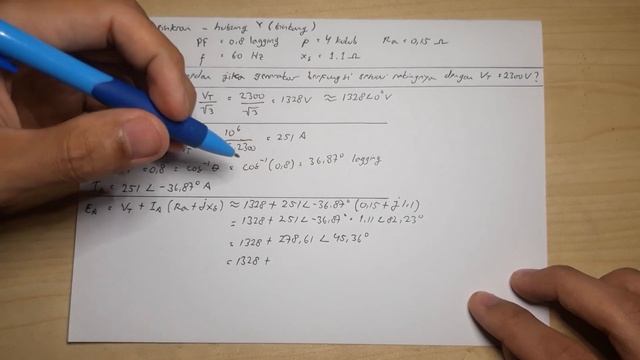 sinkron - hubung Y (bintang)
PF = 0,8 lagging P = 4 kutub Ra = 0,15 Ω
f = 60 Hz Xs = 1.1 Ω
jika generator berfungsi sesuai ratingnya dengan VT = 2300 V ?
VT/√3 = 2300/√3 = 1328 V ≈ 1328∠0° V
10⁶ 2300 = 251 A
= 0,8 = cos⁻¹ θ = cos⁻¹ (0,8) = 36,87° lagging
IA = 251 ∠ -36,87° A
EA = VT + IA (Ra + jXs) ≈ 1328 + 251 ∠ -36,87° (0,15 + j 1,1)
= 1328 + 251 ∠ -36,87° . 1,11 ∠ 82,23°
= 1328 + 278,61 ∠ 45,36°
= 1328 +